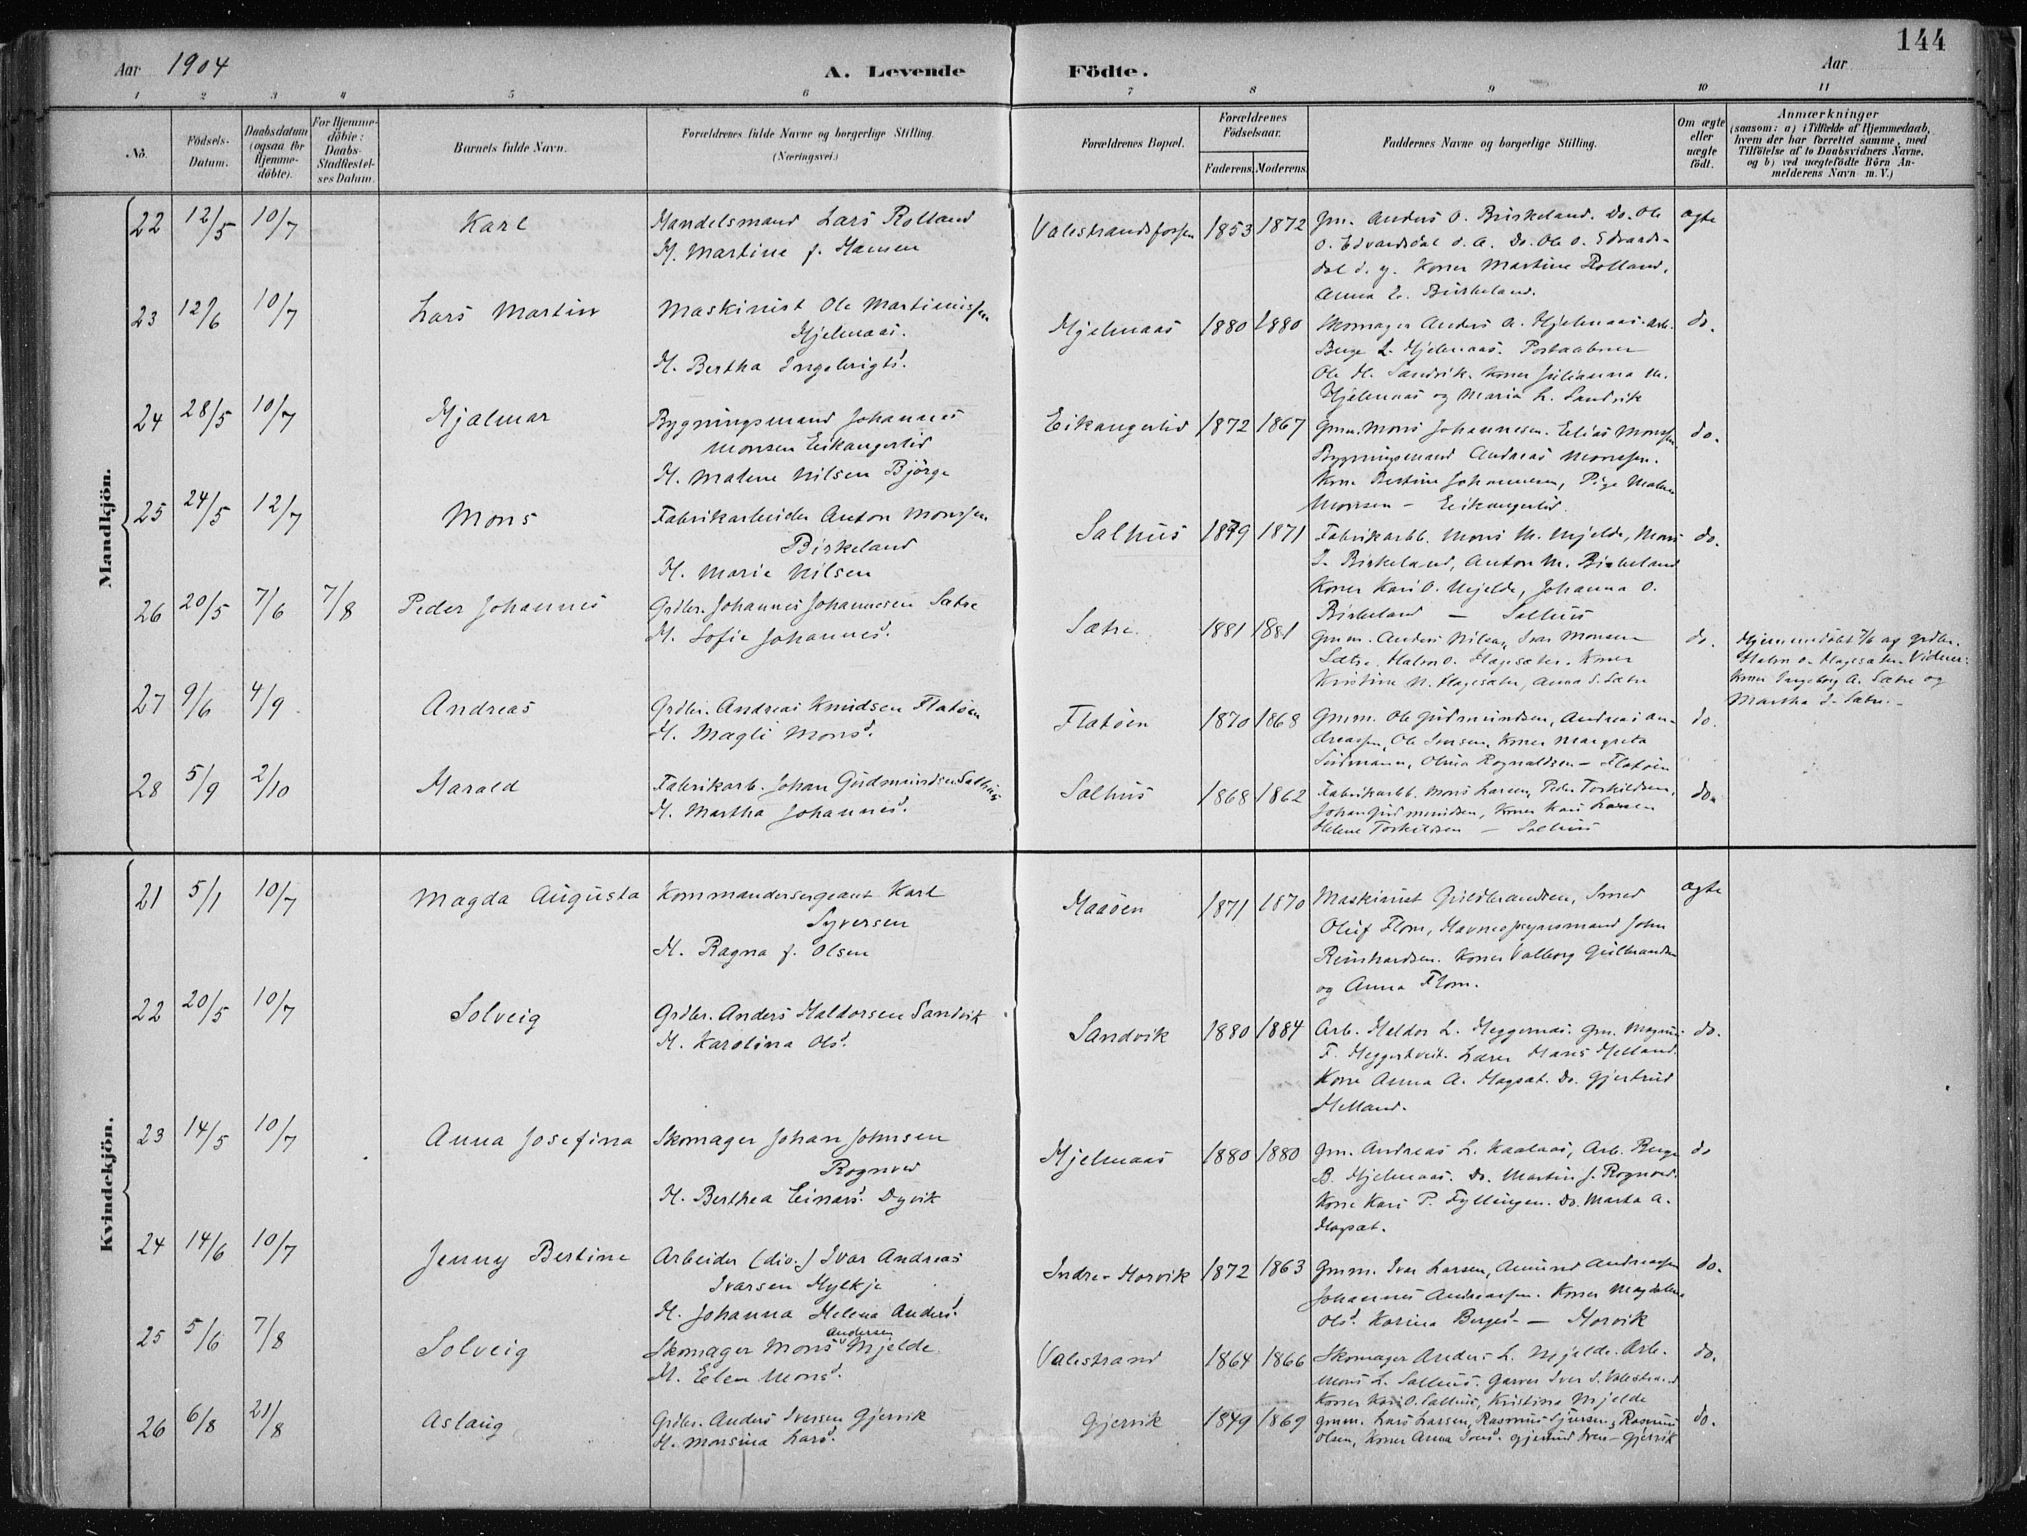 144
Aar 1904 A. Levende Födte. Aar
1 2 3 4 5 6 7 8 9 10 11
No. Födsels-Datum. Daabsdatum (ogsaa for Hjemme-döbte). For Hjemme-döbte: Daabs-Stadfæstel-ses Datum. Barnets fulde Navn. Forældrenes fulde Navne og borgerlige Stilling. (Næringsvei.) Forældrenes Bopæl. Forældrenes Födselsaar. Faderens. Moderens. Faddernes Navne og borgerlige Stilling. Om ægte eller uægte födt. Anmærkninger (saasom: a) i Tilfælde af Hjemmedaab, hvem der har forrettet samme, med Tilföielse af to Daabsvidners Navne, og b) ved uægtefödte Börn An-melderens Navn m. V.)
Mandkjön.
22 12/5 10/7 Karl Handelsmand Lars Rolland Valestrandsfossen 1853 1872 Gm. Anders O. Birkeland. Do. Ole ægte
H. Martine f. Hansen O. Edvardsdal d. æ. Do. Ole O. Edvards-
dal d. y. Koner Martine Rolland,
Anna E. Birkeland.
23 12/6 10/7 Lars Martin Maskinist Ole Martinussen Hjelmaas 1880 1880 Skomager Anders A. Hjelmaas. Arb. do.
Hjelmaas. Berge L. Hjelmaas. Postaabner
H. Bertha Ingebrigtsd. Ole H. Sandvik. Koner Julianna M.
Hjelmaas og Maria L. Sandvik
24 28/5 10/7 Hjalmar Bygningsmand Johannes Eikangerlid 1872 1867 Gmm. Mons Johannesen. Elias Monssen do.
Monsen Eikangerlid Bygningsmand Andreas Monssen.
H. Malene Nilsen Bjørge Kone Bertine Johannesen, Pige Malene
Monsen – Eikangerlid.
25 24/5 12/7 Mons Fabrikarbeider Anton Monssen Salhus 1879 1871 Fabrikarbb. Mons M. Mjelde, Mons do.
Birkeland I. Birkeland, Anton M. Birkeland
H. Marie Nilsen Koner Kari O. Mjelde, Johanna O.
Birkeland – Salhus
26 20/5 7/6 7/8 Peder Johannes Grdbr. Johannes Johannesen Sætre Sætre 1881 1881 Gmm. Anders Nilsen, Ivar Monsen do. Hjemmedøbt 7/6 af grdbr.
H. Sofie Johannesd. Sætre, Halvor O. Hagesæter. Koner Halvor O. Hagesæter. Vidner:
Kristine N. Hagesæter, Anna S. Sætre Koner Ingeborg A. Sætre og
Martha I. Sætre.
27 9/6 4/9 Andreas Grdbr. Andreas Knudsen Flatøen Flatøen 1870 1868 Gmm. Ole Gudmundsen, Andreas An- do.
H. Magli Monsd. dreassen, Ole Iversen, Koner Margreta
Olina Rognaldsen – Flatøen
28 5/9 2/10 Harald Fabrikarb. Johan Gudmundsen Salhus Salhus 1868 1862 Fabrikarbb. Mons Larsen, Peder Torkildsen, do.
H. Martha Johannesd. Johan Gudmundsen, Koner Kari Larsen
Helene Torkildsen – Salhus
Kvindekjön.
21 5/1 10/7 Magda Augusta Kommandersergeant Karl Haaøen 1871 1870 Maskinist Guldbrandsen, Smed ægte
Syversen Oluf Flom, Havneopsynsmand John
H. Ragna f. Olsen Reinhardsen. Koner Valborg Gulbrandsen
og Anna Flom.
22 20/5 10/7 Solveig Grdbr. Anders Haldorsen Sandvik Sandvik 1880 1884 Arb. Haldor L. Heggernæs. Gm. Magnus do.
H. Karolina Olsd. F. Heggertveit. Lærer Hans Helland.
Kone Anna A. Hagsæt. Do. Gjertrud
Helland.
23 14/5 10/7 Anna Josefina Skomager Johan Johnsen Hjelmaas 1880 1880 Gm. Andreas L. Kaalaas, Arb. Berge do
Rognved B. Hjelmaas. Do. Martin J. Rognved.
H. Berthea Einarsd. Dyvik Kone Kari P. Fyllingen. Do. Marta A.
Hagsæt.
24 14/6 10/7 Jenny Bertine Arbeider (div.) Ivar Andreas Indre-Horvik 1872 1863 Gmm. Ivar Larsen, Amund Andreassen do.
Ivarsen Hylkje Johannes Andreassen. Koner Magdalene
H. Johanna Helena Andersd. Olsd. Karina Bergesd – Horvik
25 5/6 7/8 Solveig Skomager Mons Andersen Mjelde Valestrand 1864 1866 Skomager Anders L. Mjelde. Arb. do.
H. Elen Monsd. Mons L. Salhus. Garver Iver S. Valestrand
Koner Kari O. Salhus, Kristina Mjelde
26 6/8 21/8 Aslaug Grdbr. Anders Iversen Gjervik Gjervik 1849 1869 Gmm. Lars Larsen, Rasmus Sjursen, Rasmus do.
H. Monsina Larsd. Olsen, Koner Anna Iversd. Gjertrud Iversd – Gjervik